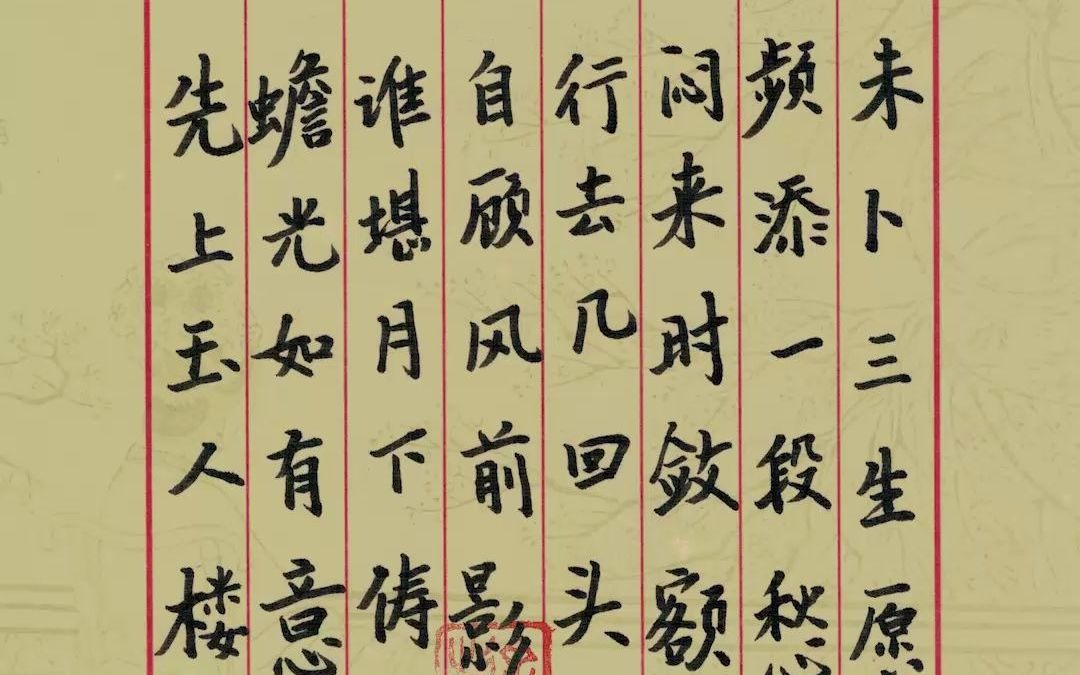 未卜三生愿
频添一段愁
闷来时敛额
行去几回头
自顾风前影
谁堪月下俦
蟾光如有意
先上玉人楼